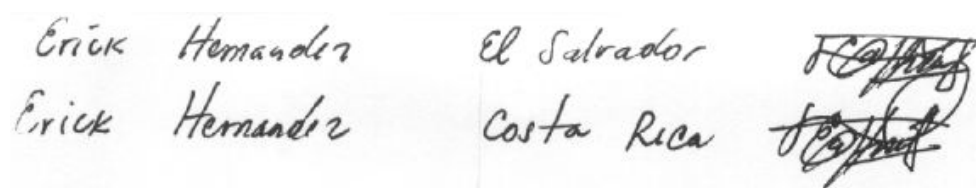 Erick Hernandez El Salvador
Erick Hernandez Costa Rica